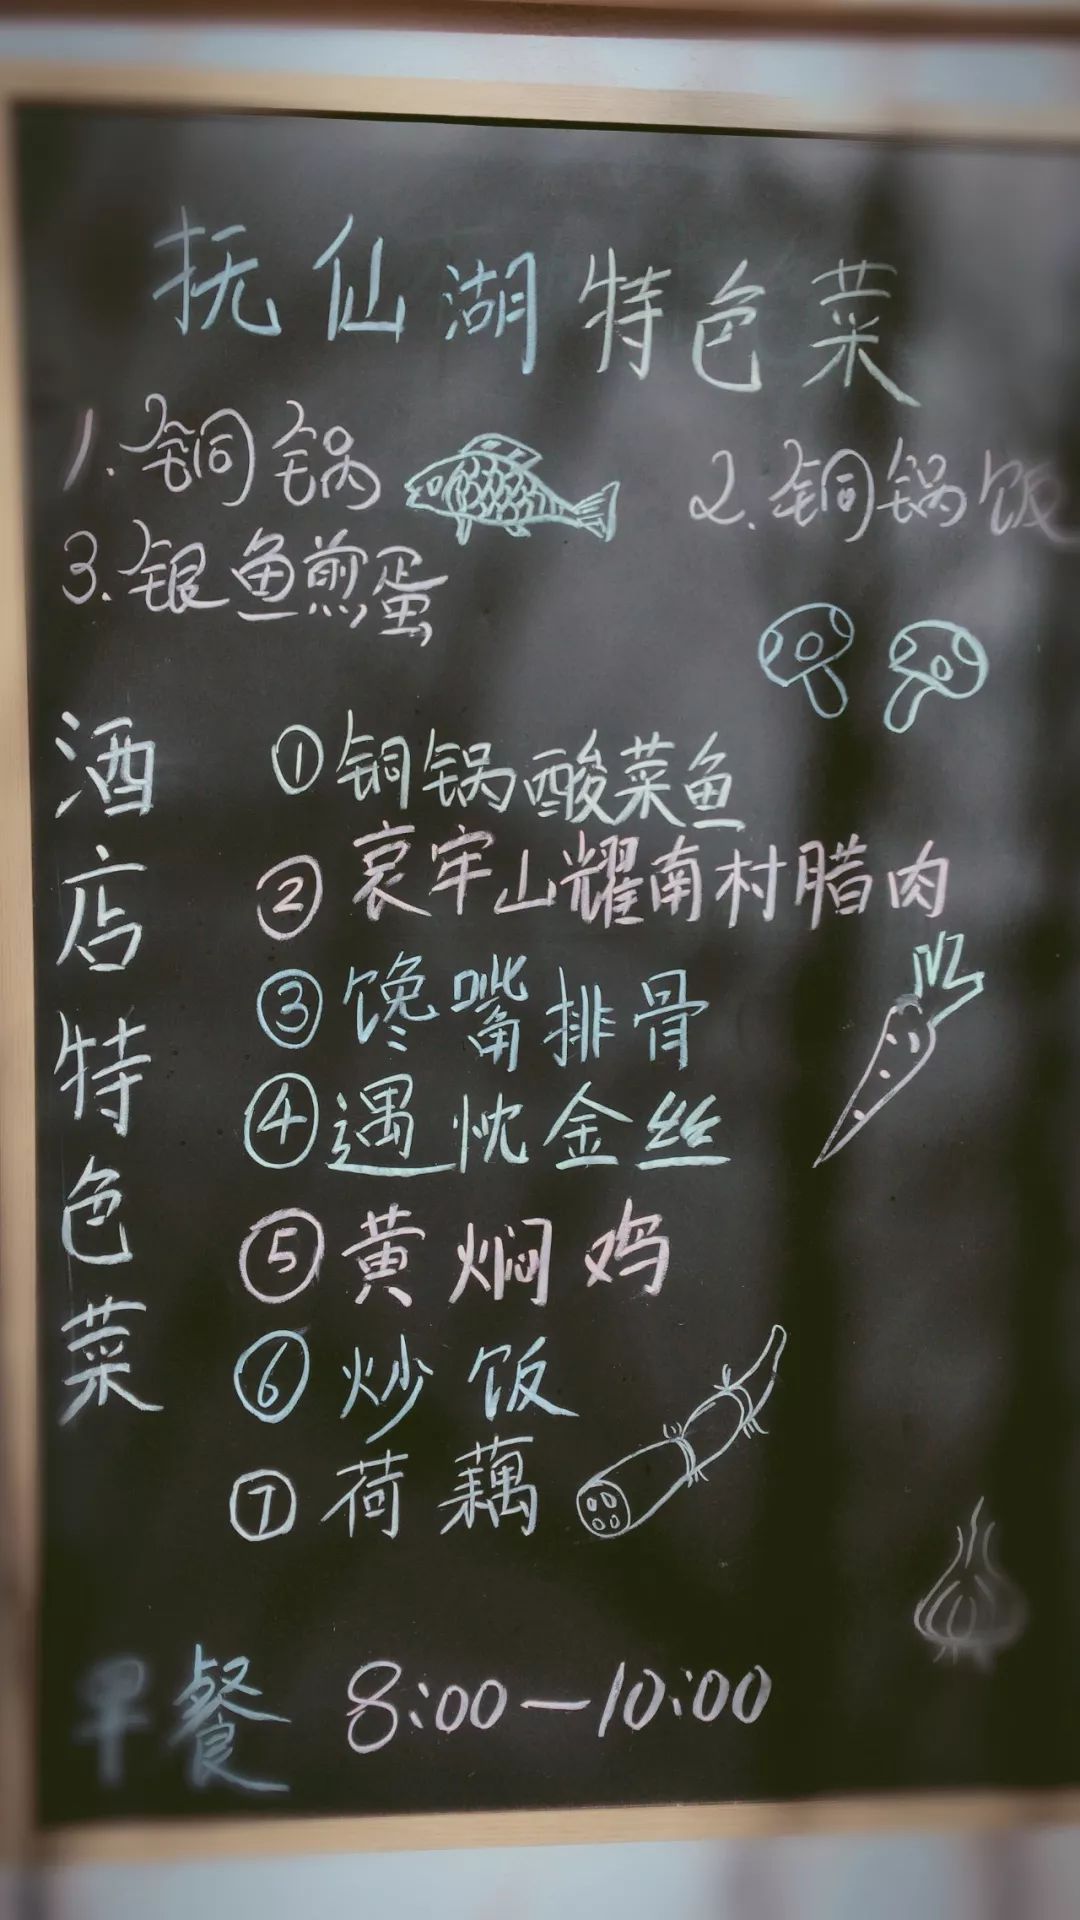 抚仙湖特色菜
1.铜锅 2.铜锅饭
3.银鱼煎蛋
酒店特色菜
①铜锅酸菜鱼
②哀牢山耀南村腊肉
③馋嘴排骨
④遇忱金丝
⑤黄焖鸡
⑥炒饭
⑦荷藕
早餐 8:00—10:00